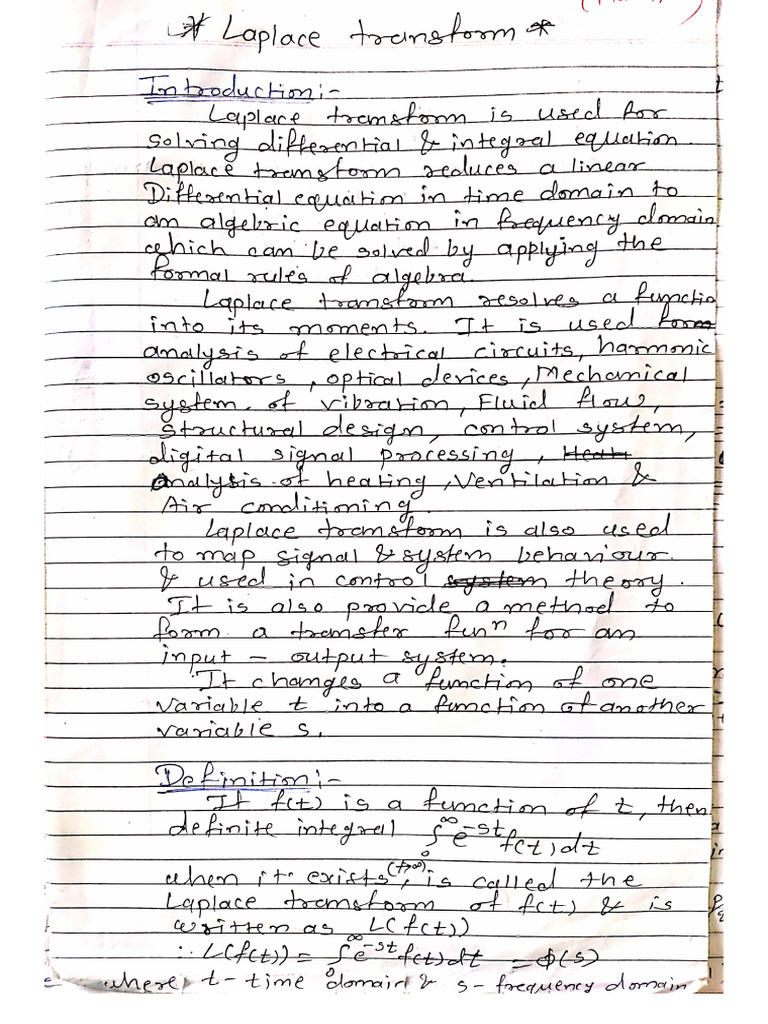 * Laplace transform *
Introduction :-
Laplace transform is used for
solving differential & integral equation.
Laplace transform reduces a linear
Differential equation in time domain to
an algebric equation in frequency domain
which can be solved by applying the
formal rules of algebra.
Laplace transform resolves a functio
into its moments. It is used for
analysis of electrical circuits, harmonic
oscillators, optical devices, Mechanical
system of vibration, Fluid flow,
structural design, control system,
digital signal processing, Heat
analysis of heating, Ventilation &
Air conditioning.
Laplace transform is also used
to map signal & system behaviour.
& used in control system theory.
It is also provide a method to
form a transfer funⁿ for an
input - output system.
It changes a function of one
variable t into a function of another
variable s.
Definition :-
If f(t) is a function of t, then
definite integral ∫₀^∞ e^-st f(t) dt
when it exists (t→∞), is called the
Laplace transform of f(t) & is
written as L(f(t))
∴ L(f(t)) = ∫₀^∞ e^-st f(t) dt = Φ(s)
where t - time domain & s - frequency domain